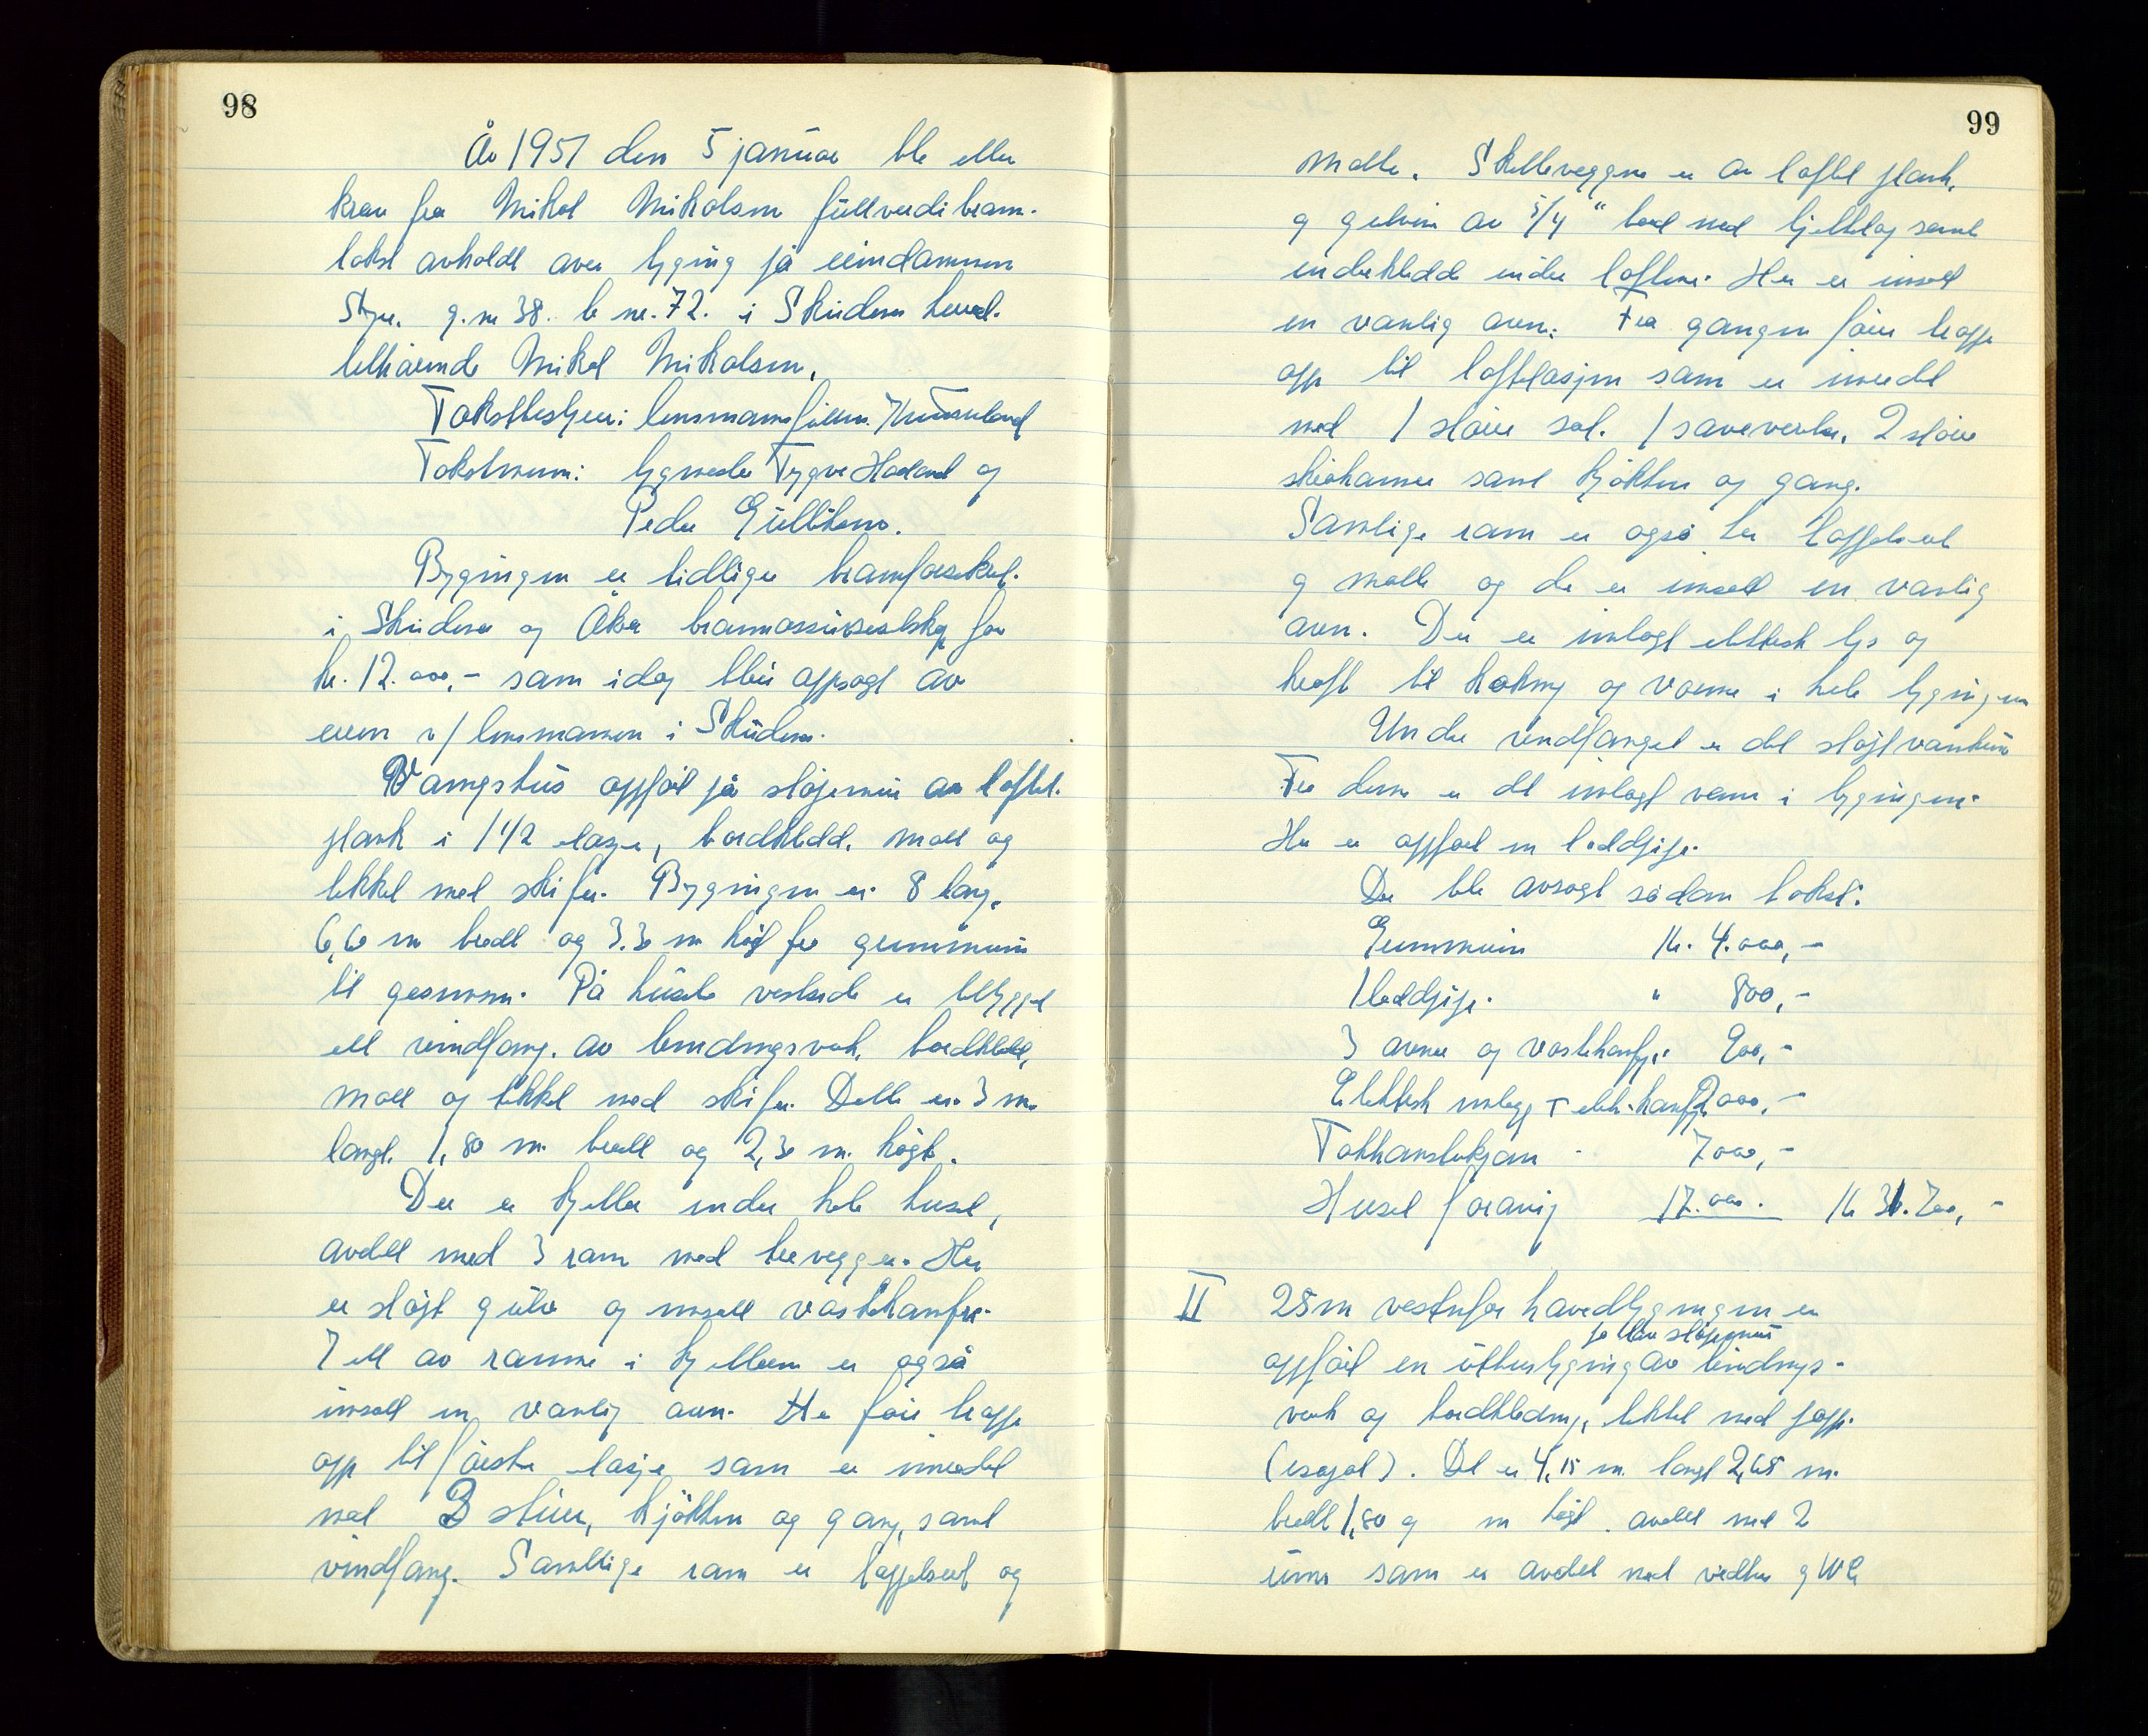 98
År 1951 den 5 januar ble etter
krav fra Mikal Mikalsen fullverdi brann-
takst avholdt over bygning på eiendommen
g.nr 38. b nr. 72. i Skudenes herred.
tilhørende Mikal Mikalsen.
Takstbestyrer: lensmannsfullm.
Takstmenn: bygmester Trygve Hadland og
Peder Gulbrands.
Bygningen er tidligere brannforsikret
i Skudenes og Åkra brannassuranseselskap for
kr. 12.000,- som idag blir oppsagt av
eieren v/ lensmannen i Skudenes.
Våningshus oppført på støpemur av toftet
plank i 1 1/2 etasje, bordkledd, malt og
tekket med skifer. Bygningen er 8 lang,
6,60 m bredt og 3.30 m høgt fra grunnmuren
til gesimsen. På husets vestside er tilbygget
ett vindfang av bindingsverk, bordkledd,
malt og tekket med skifer. Dette er 3 m.
langt, 1,80 m. bredt og 2,30 m. høgt.
Der er kjeller under hele huset,
avdelt med 3 rom med trevegger. Her
er støpt gulv og innsatt vaskekomfyr.
I ett av rommene i kjelleren er også
innsatt en vanlig ovn. Her fører trapp
opp til første etasje som er innredet
med 3 stuer, kjøkken og gang, samt
vindfang. Samtlige rom er tappetsert og
99
malte. Skilleveggene er av toftet plank,
og golvene av 5/4" bord med bjelkelag samt
underkledd under loftene. Her er innsatt
en vanlig ovn. Fra gangen fører trapp
opp til loftetasjen som er innredet
med 1 større sal. 1 soveværelse, 2 større
skråkammer samt kjøkken og gang.
Samtlige rom er også her tappetsert
og malte og der er innsatt en vanlig
ovn. Der er innlagt elektrisk lys og
kraft til koking og varme i hele bygningen
Under vindfanget er det støpt vanntank
Fra denne er det innlagt vann i bygningen.
Her er oppført en teglpipe.
Der ble avsagt sådan takst:
Grunnmuren kr. 4.000,-
1 teglpipe. " 800,-
3 ovner og vaskekomfyr 900,-
Elektrisk innlegg + elek. komfyr 2000,-
Takkonstruksjon - 7000,-
Huset forøvrig 17.000. kr 31.700,-
II 25 m vestenfor hovedbygningen er
på lav støpemur
oppført en uthusbygning av bindings-
verk og bordkledning, tekket med papp.
(isopal). Det er 4,15 m. langt 2,65 m.
bredt 1,80 og m høgt. avdelt med 2
rum som er avdelt med vedbu og WC